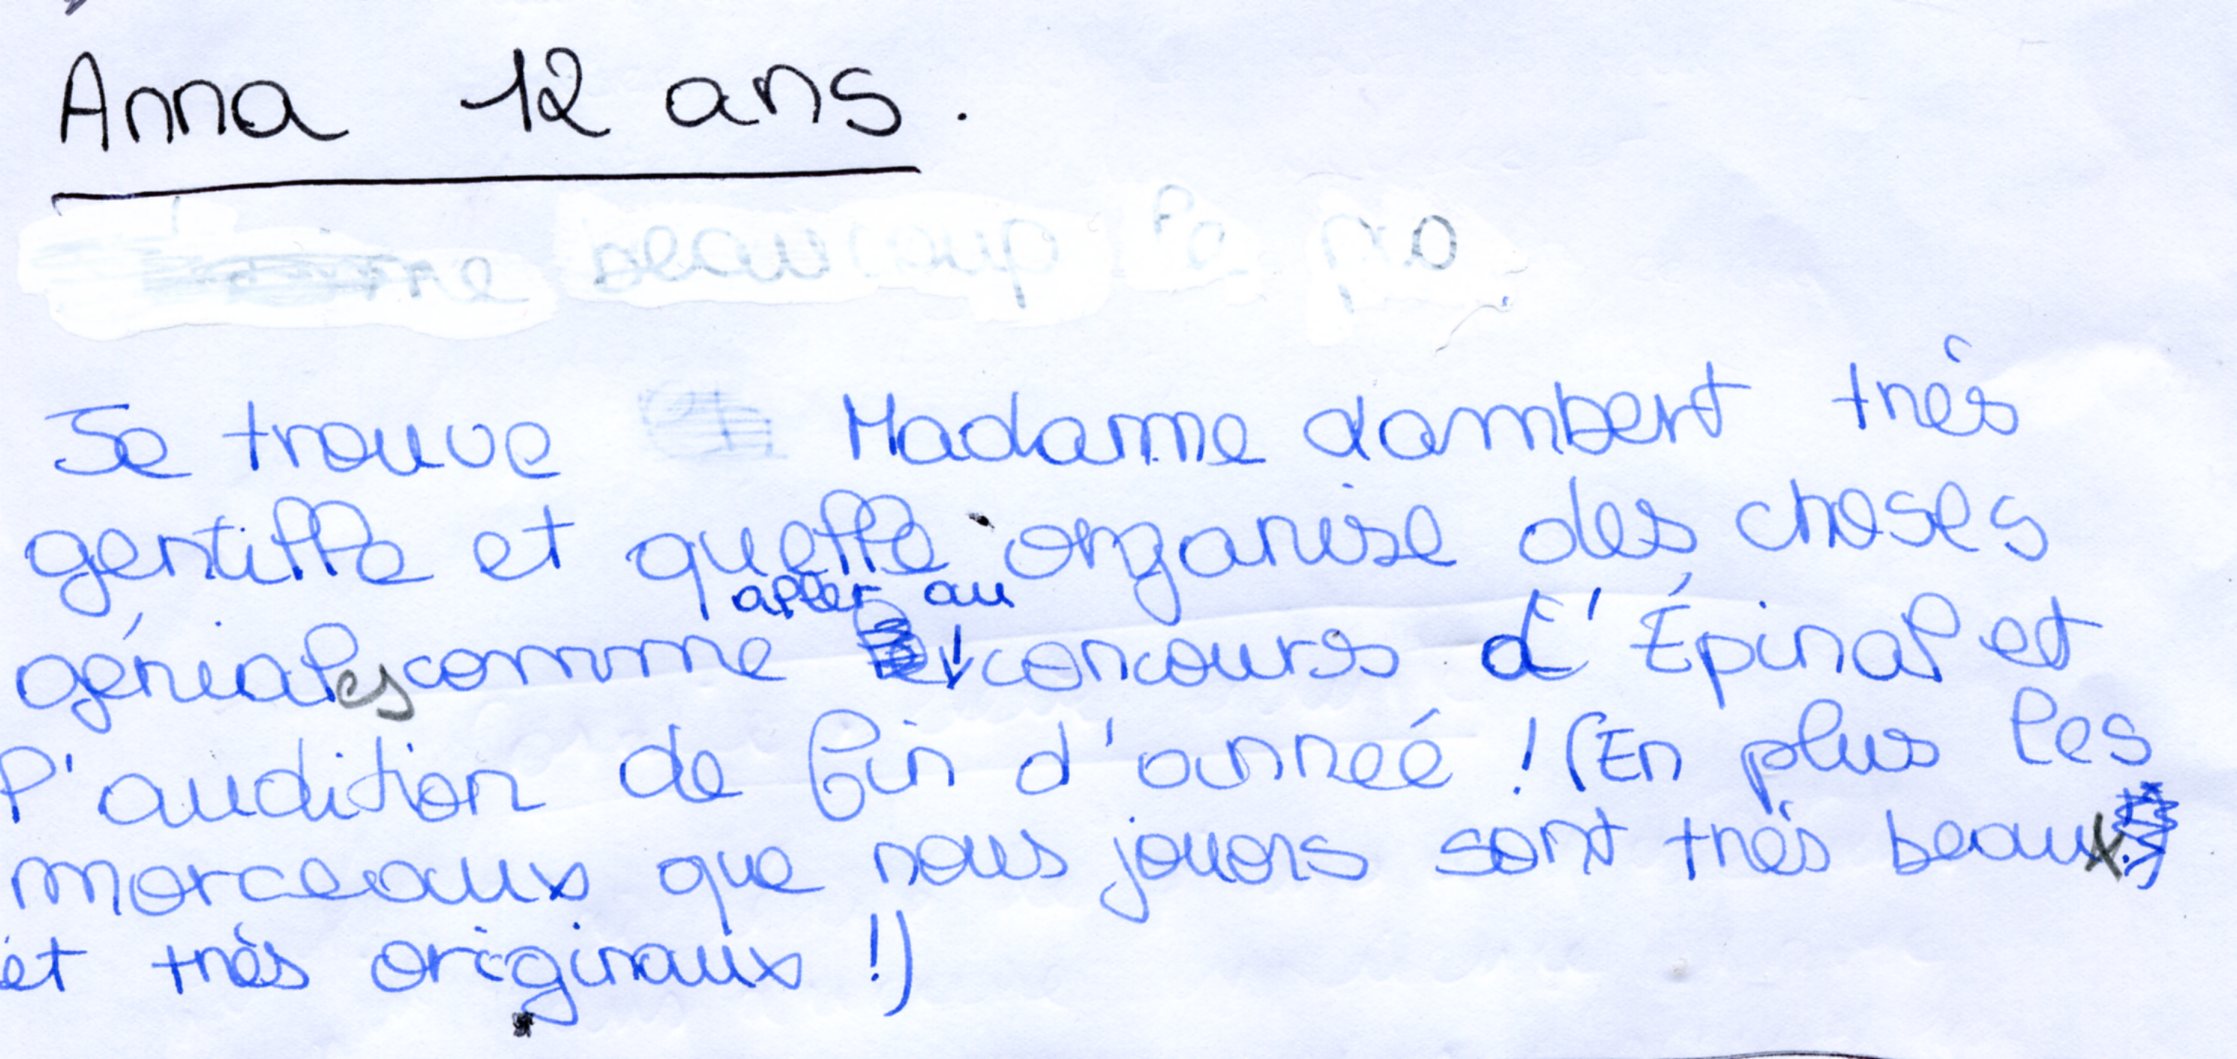 Anna 12 ans.
beaucoup
Je trouve Madame dambert très
gentille et quelle organise des choses
aller au
géniales comme concours d'Épinal et
l'audition de fin d'anneé ! (En plus les
morceaux que nous jouons sont très beaux
et très originaux !)